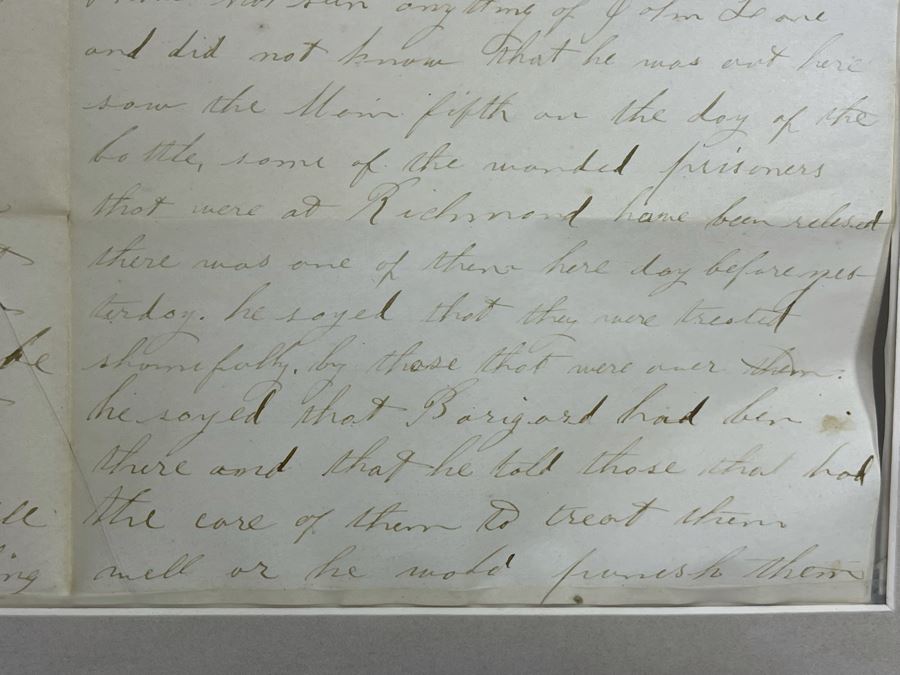 not seen anything of John
and did not know that he was out here
saw the Main fifth on the day of the
battle, some of the wonded prisoners
that were at Richmond have been relesed
there was one of them here day before yes
terday. he sayed that they were treated
shamefully. by those that were over them.
he sayed that Borigard had ben
there and that he told those that had
the care of them to treat them
well or he wold punish them
he
ll
ing